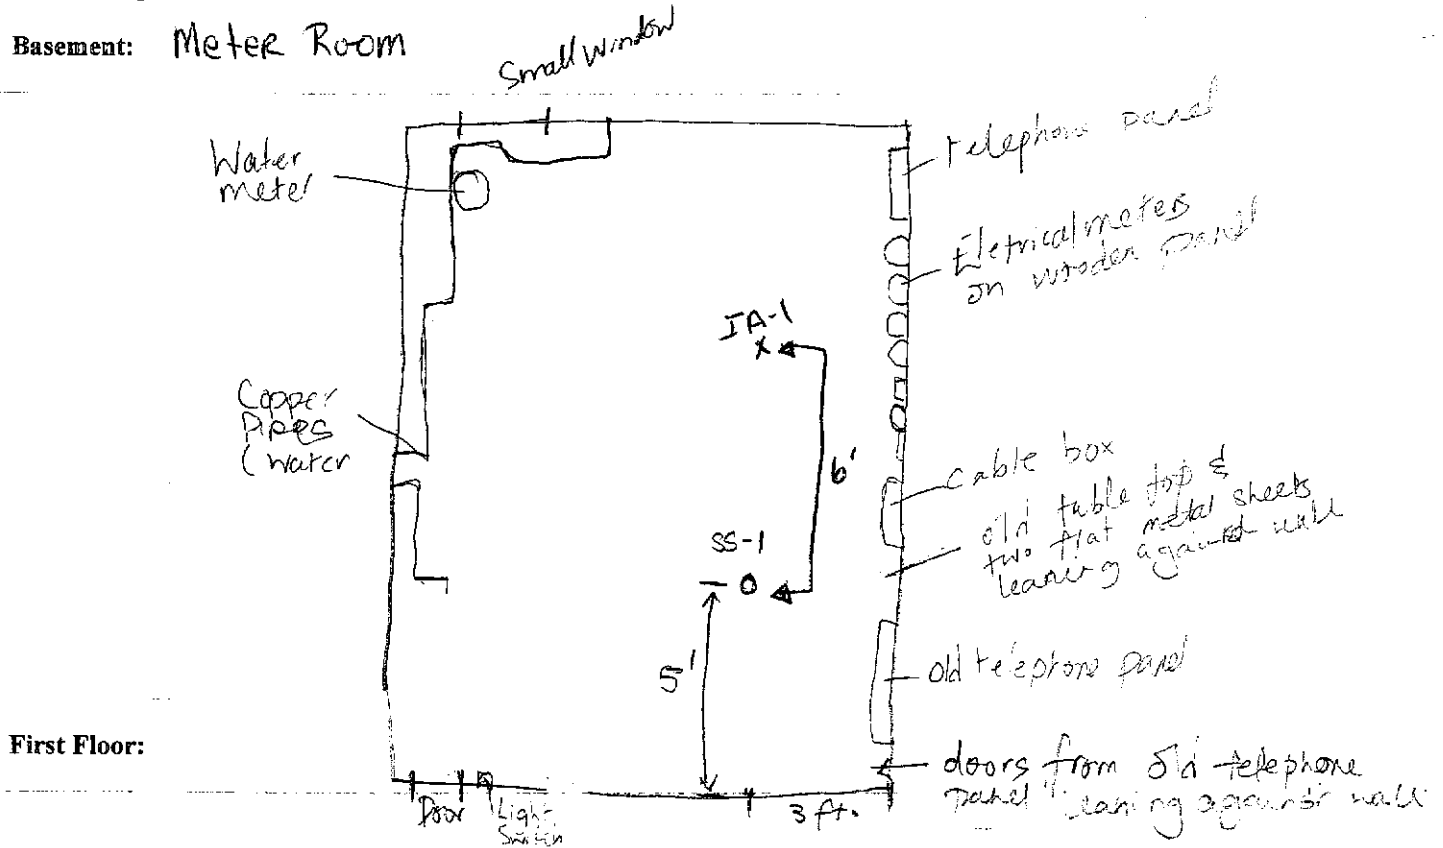 Basement: Meter Room
Small Window
Water
meter
telephone panel
Eletrical meters
on wooden panel
IA-1
x
Copper
Pipes
(water
6'
Cable box
old table top &
two flat metal sheets
leaning against wall
SS-1
5'
old telephone panel
First Floor:
doors from old telephone
panel leaning against wall
Door
Light
Switch
3 ft.